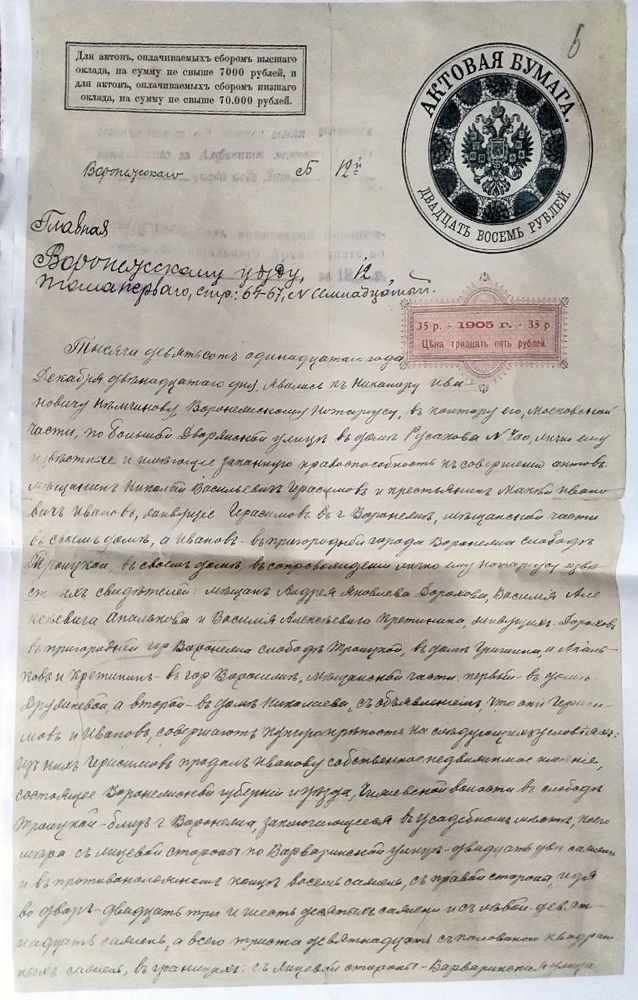 Для актовъ, оплачиваемыхъ сборомъ высшаго
оклада, на сумму не свыше 7000 рублей, и
для актовъ, оплачиваемыхъ сборомъ низшаго
оклада, на сумму не свыше 70.000 рублей.
6
АКТОВАЯ БУМАГА.
ДВАДЦАТЬ ВОСЕМЬ РУБЛЕЙ.
Главная
Воронежскому уѣзду, 12
тома перваго, стр: 64-67, N Семнадцатый.
35 р. - 1905 г. - 35 р.
Цѣна тридцать пять рублей.
Тысяча девятьсотъ одинадцатаго года
Декабря двѣнадцатаго дня, явились къ Никанору Ива
новичу Нѣмчинову, Воронежскому Нотаріусу, въ контору его, Московской
части, по Большой Дворянской улицѣ въ домѣ Русанова N, лично ему
извѣстные и имѣющіе законную правоспособность къ совершенію актовъ
мѣщанинъ Николай Васильевичъ Герасимовъ и крестьянинъ Ивано
вичъ Ивановъ, живущіе Герасимовъ въ г Воронежѣ, мѣщанской части
въ своемъ домѣ, а Ивановъ - въ пригородней города Воронежа слободѣ
Троицкой, въ своемъ домѣ, въ сопровожденіи лично ему нотаріусу извѣ
стныхъ свидѣтелей: мѣщанъ Андрея Яковлева Дорохова, Василія Але
ксѣевича Апалькова и Василія Алексѣевича Кретинина, живущихъ: Дороховъ
въ пригородней гор Воронежа слободѣ Троицкой, въ домѣ, а Апаль
ковъ и Кретининъ - въ гор Воронежѣ, Мѣщанской части. первый - въ домѣ
а второй - въ домѣ Николаева, съ объявленіемъ, что они Гераси
мовъ и Ивановъ, совершаютъ купчую крѣпость на слѣдующихъ условіяхъ:
изъ нихъ Герасимовъ продалъ Иванову собственное недвижимое имѣніе,
состоящее Воронежской губерніи и уѣзда, Чижевской волости въ слободѣ
Троицкой - близъ г Воронежа, заключающееся въ усадебномъ мѣстѣ, коего
мѣра съ лицевой стороны по Варваринской улицѣ - двадцать двѣ сажени
и въ противоположномъ концѣ восемь сажень, съ правой стороны, идя
во дворъ - двадцать три и шесть десятыхъ сажени и съ лѣвой - девят
надцать сажень, а всего триста девятнадцать съ половиной квадрат
ныхъ сажень, въ границахъ: съ лицевой стороны - Варваринская улица